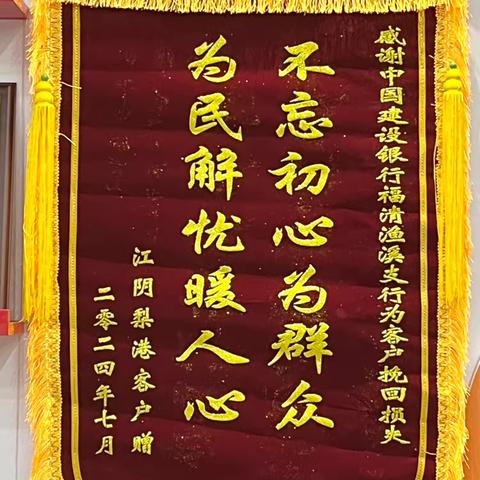 感谢中国建设银行福清渔溪支行为客户挽回损失
不忘初心为群众
为民解忧暖人心
江阴梨港客户赠
二零二四年七月